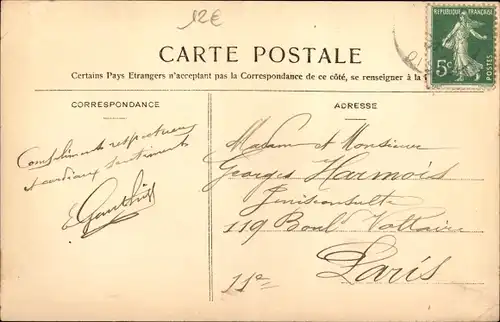 12€
RÉPUBLIQUE FRANÇAISE
5c
POSTES
CARTE POSTALE
Certains Pays Etrangers n'acceptant pas la Correspondance de ce côté, se renseigner à la
CORRESPONDANCE
ADRESSE
Compliments respectueux
et cordiaux sentiments
Madame et Monsieur
Georges Harmois
Jurisconsulte
119 Boul^d Voltaire
Paris
11e